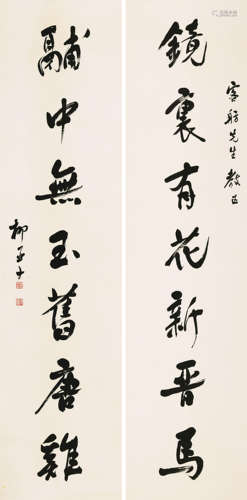 舫先生教正
鏡裏有花新晉馬
鬴中無玉舊唐雞
柳亞子